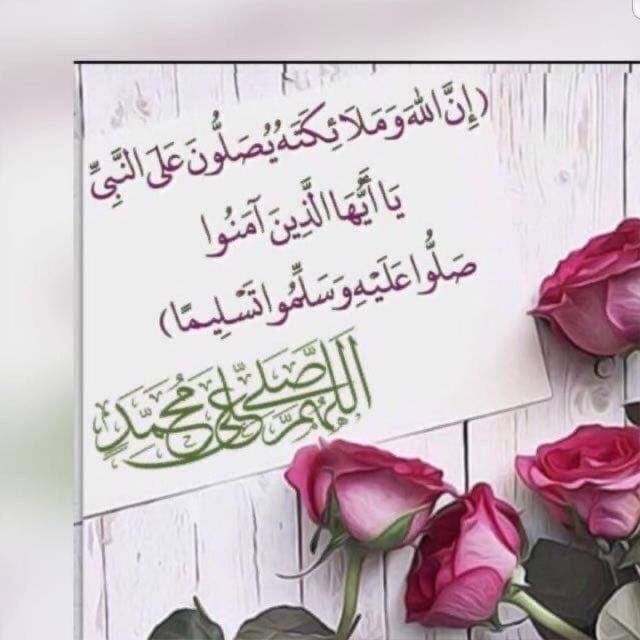 (إِنَّ اللهَ وَمَلَائِكَتَهُ يُصَلُّونَ عَلَى النَّبِيِّ
يَا أَيُّهَا الَّذِينَ آمَنُوا
صَلُّوا عَلَيْهِ وَسَلِّمُوا تَسْلِيمًا)
اللهم صل على محمد